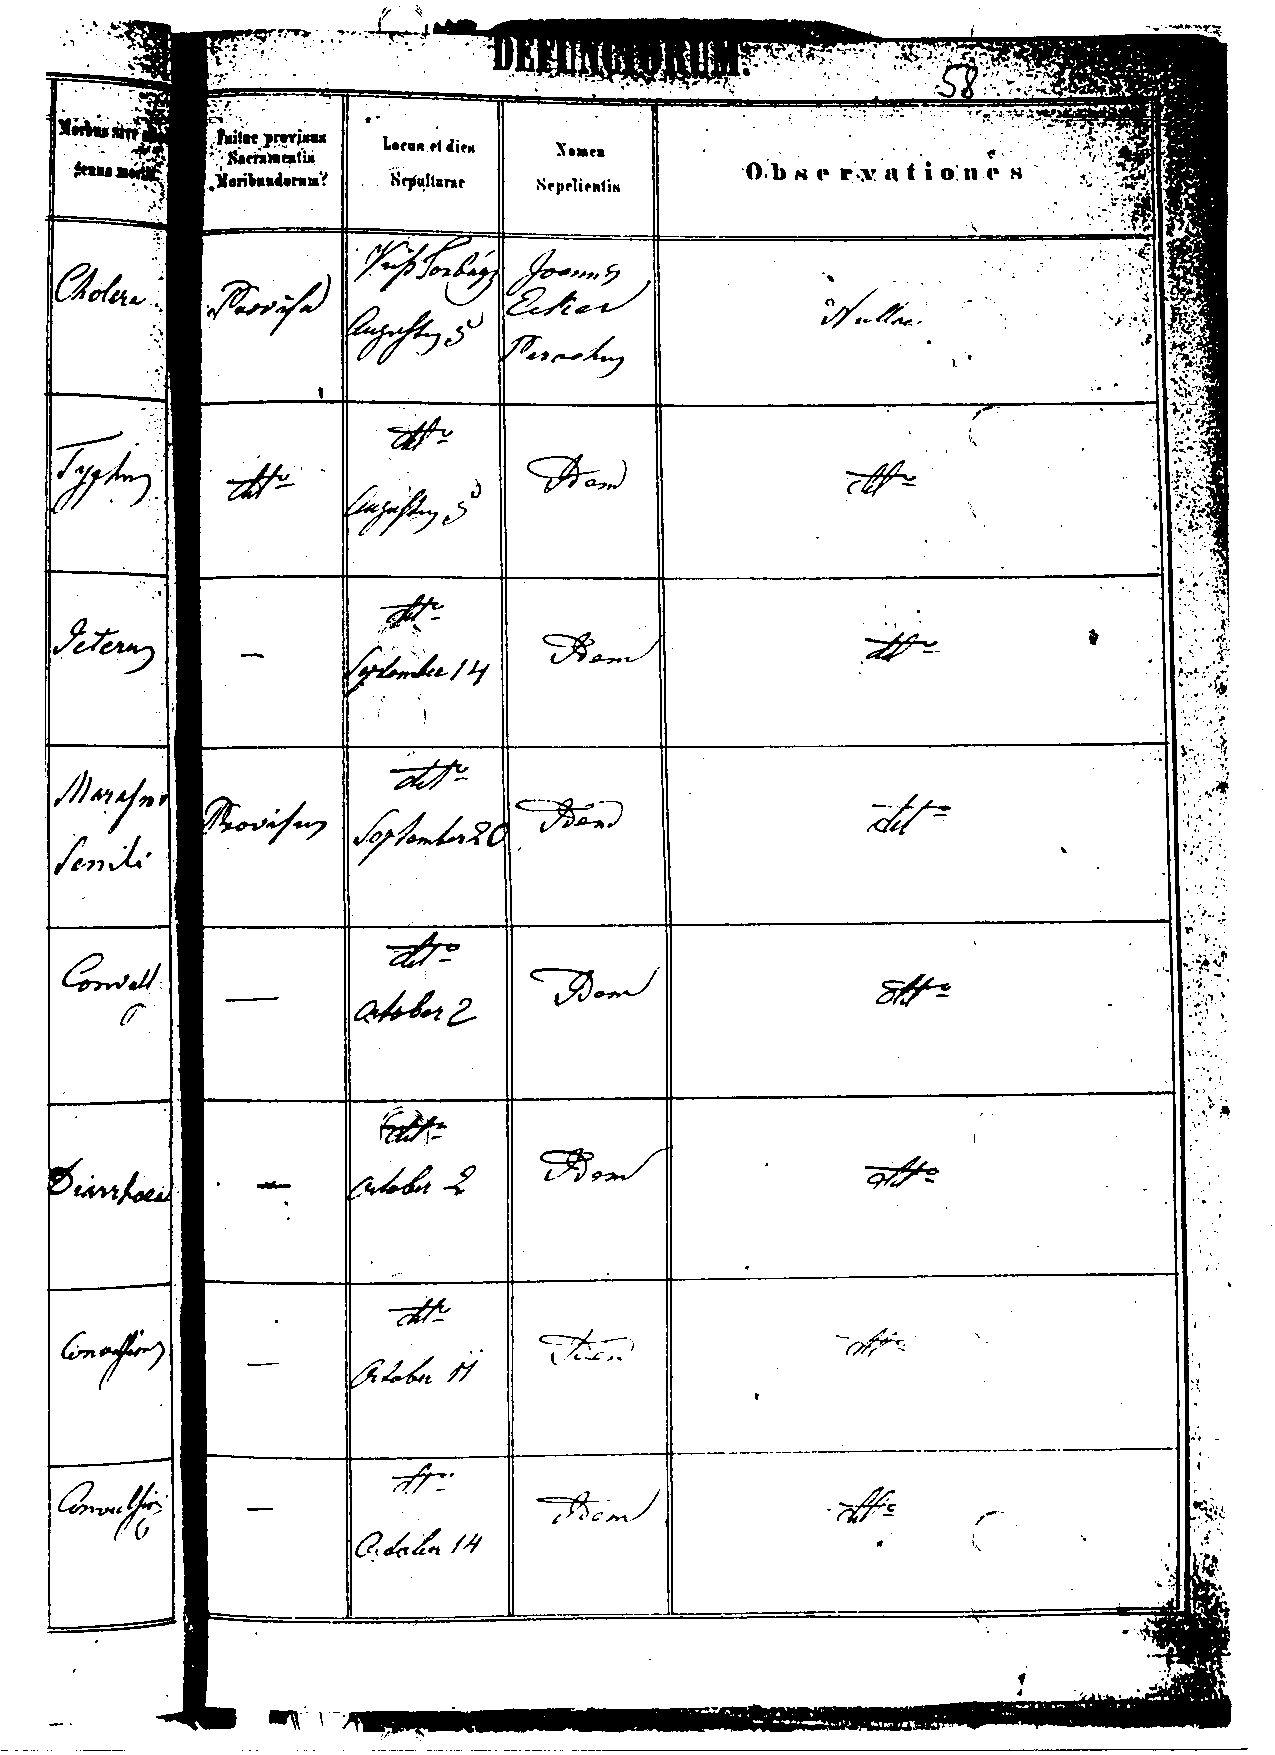 DEFUNCTORUM.
58
Morbus sive
genus mortis
Fuitne provisus
Sacramentis
Moribundorum?
Locus et dies
Sepulturae
Nomen
Sepelientis
Observationes
Cholera
Provisa
Augustus 5
Joannes
Parochus
Nullae.
Typhus
dtto
dtto
Augustus 5
Idem
dtto
Icterus
—
dtto
September 14
Idem
dtto
Marasmo
Senili
Provisus
dtto
September 20
Idem
dtto
—
dtto
October 2
Idem
dtto
Diarrhoea
—
dtto
October 2
Idem
dtto
—
dtto
October 11
Idem
dtto
—
dtto
October 14
Idem
dtto